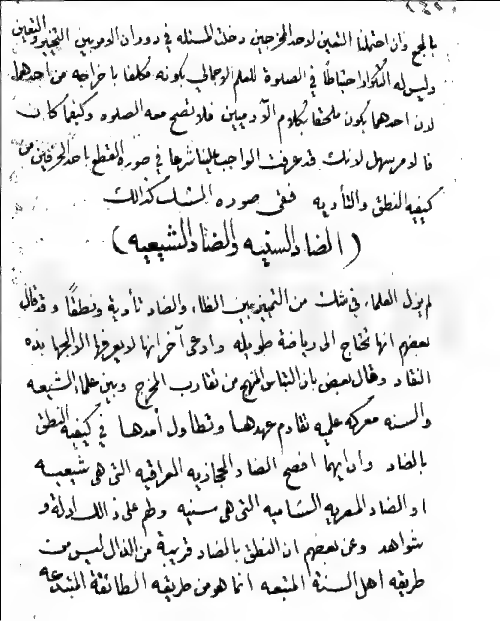 بالجمع وان احتملنا التعين لاحد المخرجين دخلت المسئله في دوران الامر بين التخيير والتعين
وليس له التكرار احتياطًا في الصلوة للعلم الاجمالي بكونه مكلفا باخراجه من احدهما
لان احدهما يكون ملحقا بكلام الآدميين فلا تصح معه الصلوه وكيفما كان
فالامر سهل لانك قد عرفت الواجب علينا شرعا في صورة القطع باحد الحرفين من
كيفيه النطق والتأديه ففى صوره الشك كذالك
(الضاد السنيه والضاد الشيعيه)
لم يزل العلماء في شك من التمييز بين الظاء والضاد تأدية ونطقًا وقد قال
بعضهم انها تحتاج الى رياضة طويله وادعى آخر انها لا يعرفها الا الجهابذه
النقاد وقال بعض بان التباس المنهج من تقارب المخرج وبين علماء الشيعه
والسنه معركه عليه تقادم عهدها وتطاول أمدها في كيفيه النطق
بالضاد وان ايهما افصح الضاد الحجازيه العراقيه التى هى شيعيه
او الضاد المصريه الشاميه التى هى سنيه ولهم على ذالك ادلة و
شواهد وعن بعضهم ان النطق بالضاد قريبة من الدال ليس من
طريقه اهل السنة المتبعه انما هو من طريقه الطائفة المبتدعه